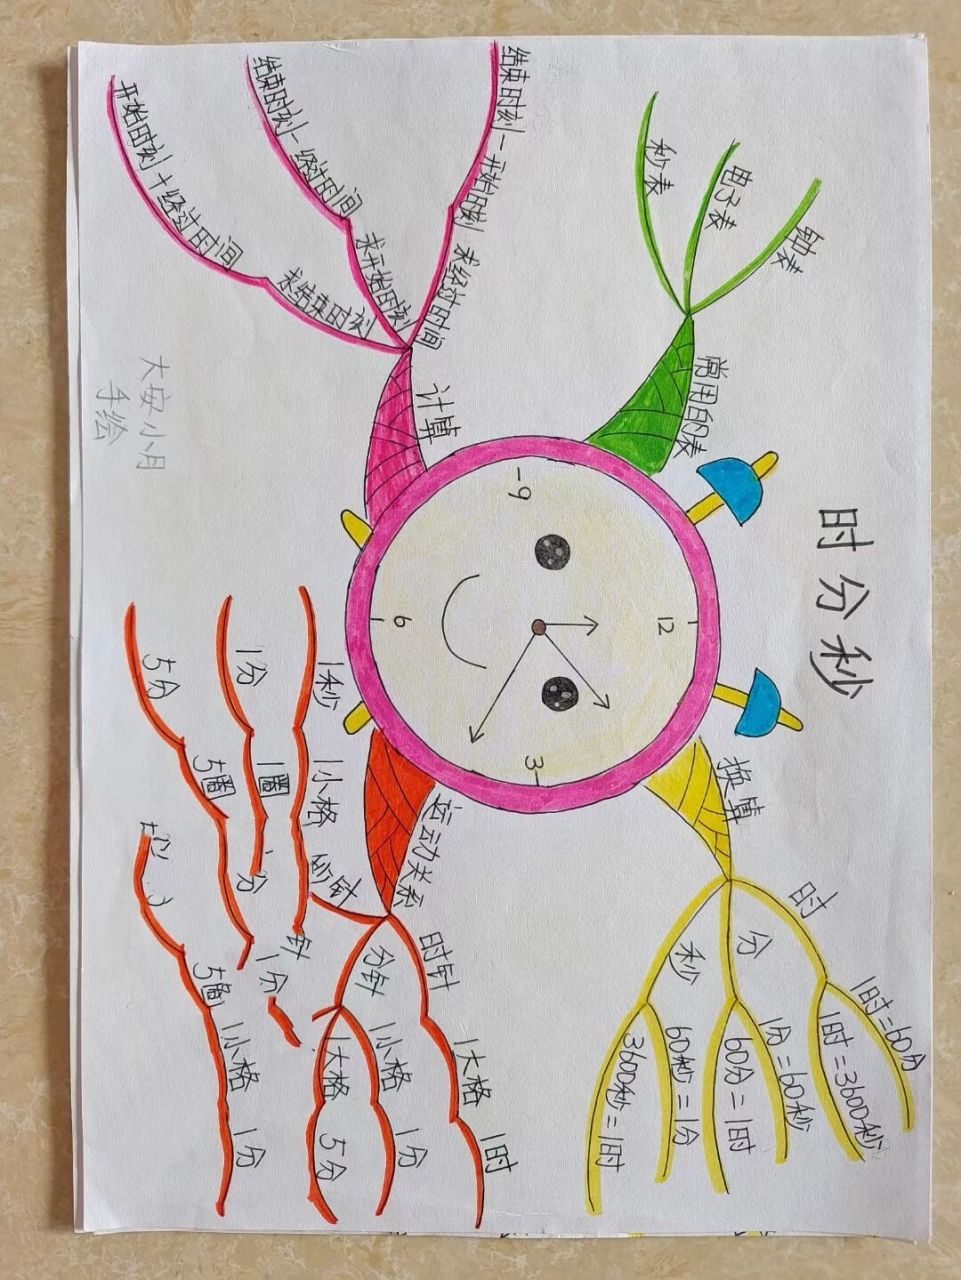 时分秒
常用的表
钟表
电子表
秒表
计算
结束时刻-开始时刻 求经过时间
结束时刻-经过时间 求开始时刻
开始时刻+经过时间 求结束时刻
12
3
6
9
换算
时
1时=60分
1时=3600秒
分
1分=60秒
60分=1时
秒
60秒=1分
3600秒=1时
运动关系
时针
1大格
1时
分针
1小格
1分
1大格
5分
秒针
1秒
1小格
1分
1圈
分
5分
5圈
分
针
1分
5圈
1小格
1分
大安小月
手绘